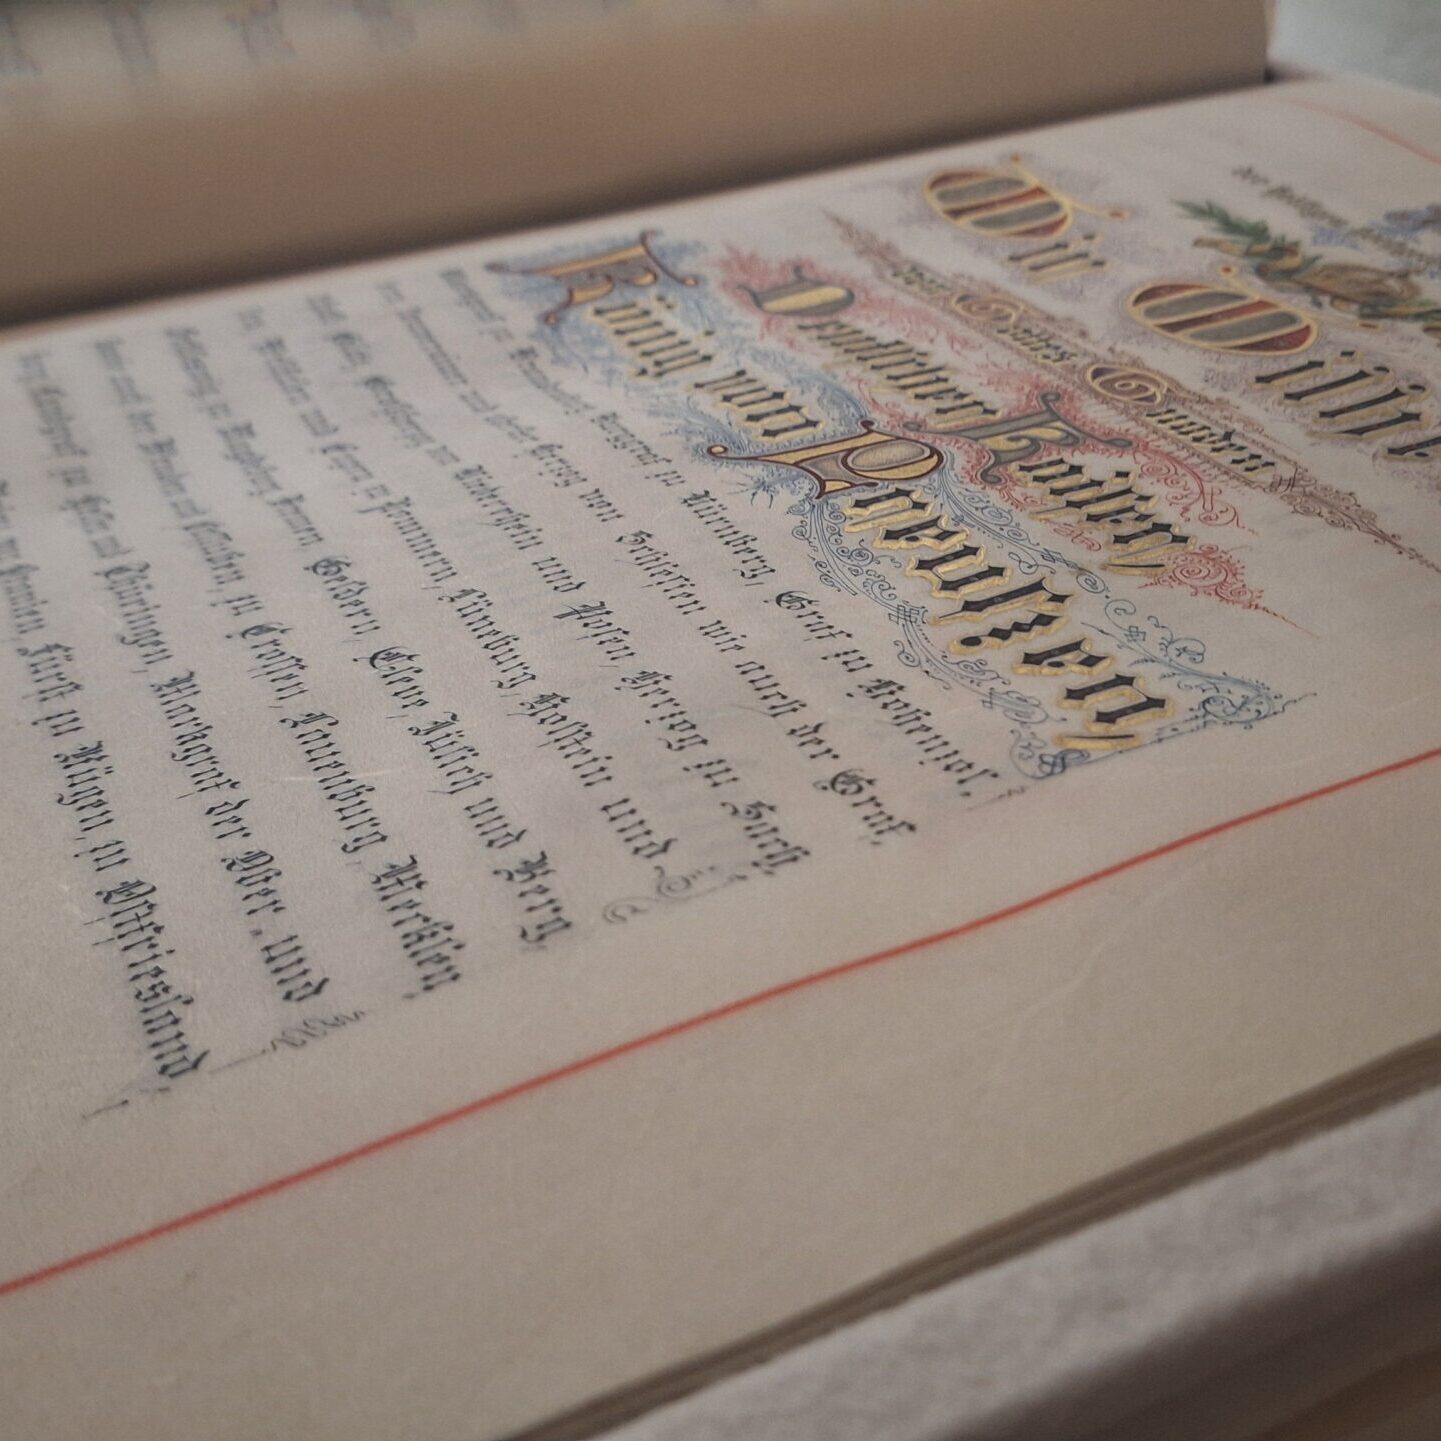 Wir Wilhe
von Gottes Gnaden
Deutscher Kaiser,
König von Preußen,
Markgraf zu Brandenburg, Burggraf zu Nürnberg, Graf zu Hohenzol-
und Herzog von Schlesien wie auch der Graf-
Glatz, Großherzog von Niederrhein und Posen, Herzog zu Sach-
sen, Westfalen und Engern, zu Pommern, Lüneburg, Holstein und
Schleswig, zu Magdeburg, Bremen, Geldern, Cleve, Jülich und Berg,
der Wenden und Kassuben, zu Crossen, Lauenburg, Mecklen-
burg, Landgraf zu Hessen und Thüringen, Markgraf der Ober- und
von Oranien, Fürst zu Rügen, zu Ostfriesland,